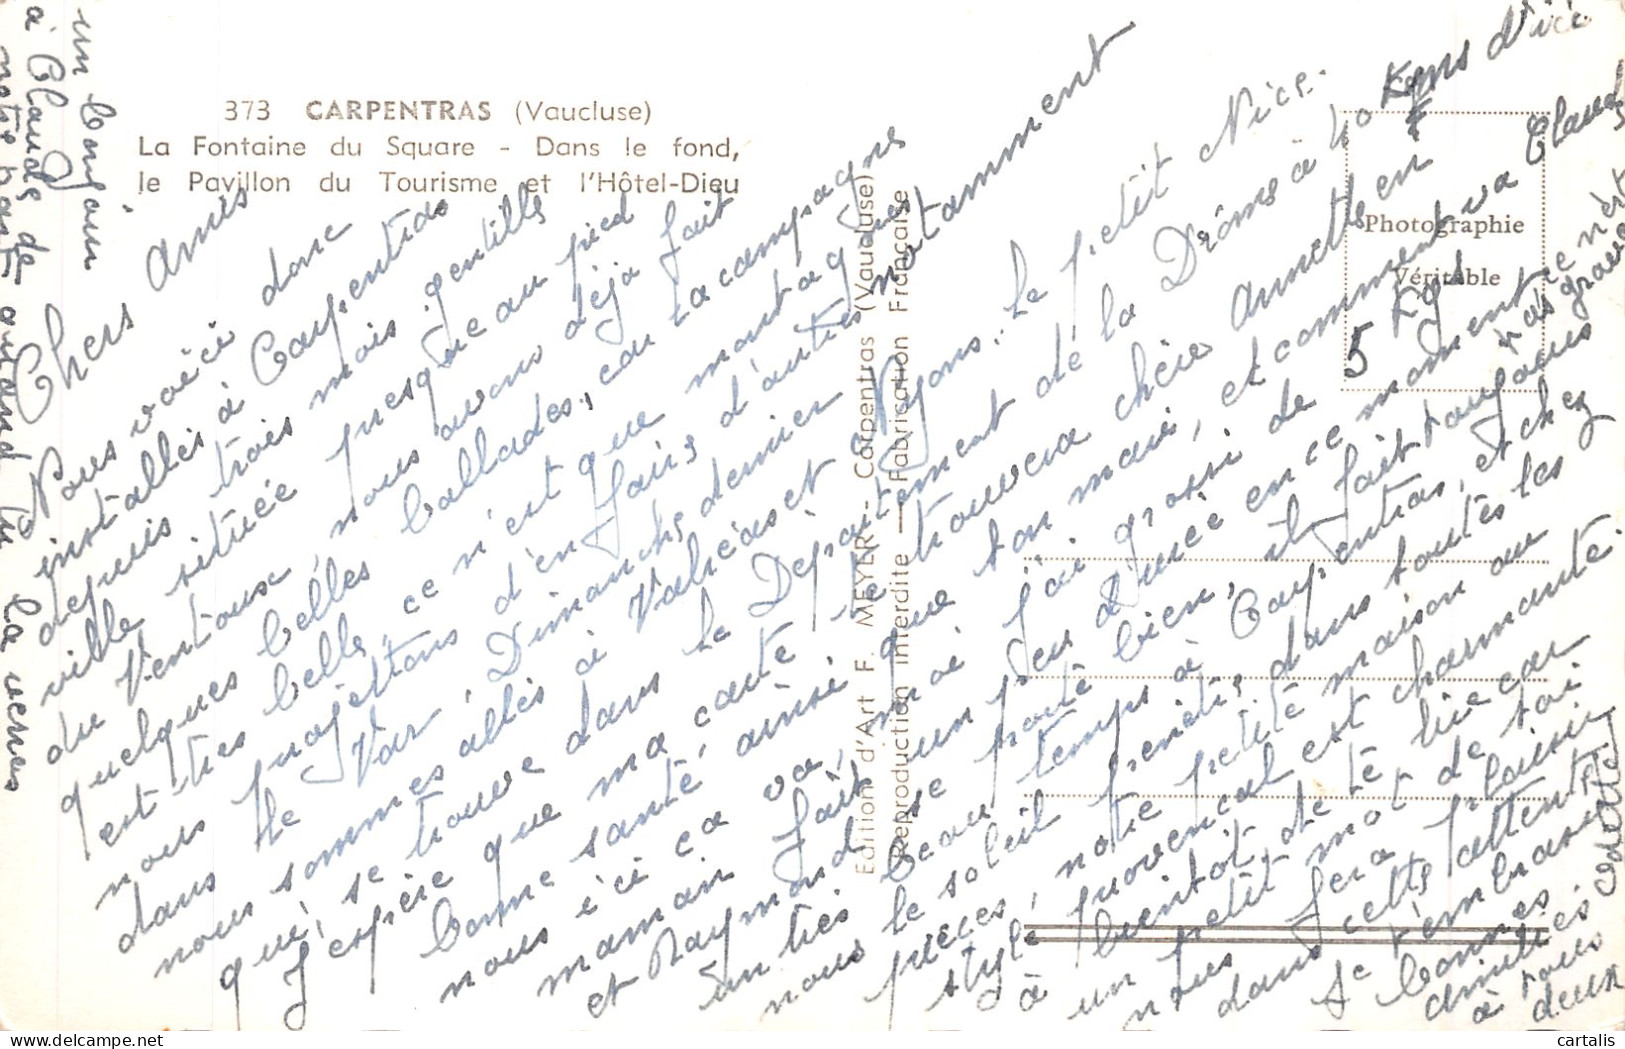 373 CARPENTRAS (Vaucluse)
La Fontaine du Square - Dans le fond,
le Pavillon du Tourisme et l'Hôtel-Dieu
Editions d'Art F. MEYER - Carpentras (Vaucluse)
Reproduction interdite - Fabrication Française
Photographie
Véritable
Chers amis
Nous voici donc
installés à Carpentras
depuis trois mois gentille
ville située presque au pied
du Ventoux, nous avons déjà fait
quelques belles ballades, car la campagne
est très belle, ce n'est que montagnes
nous projettons d'en faire d'autres notamment
dans le Var, Dimanche dernier
nous sommes allés à Valréas et Nyons. Le petit Nice.
qui se trouve dans le Département de la Drôme à 40 Kms d'ici
J'espère que ma carte te trouvera chère Annette en
bonne santé, ainsi que ton mari, et comment va Claude
nous ici ça va, moi j'ai grossi de 5 Kgs
maman fait un peu d'urée en ce moment ce n'est pas grave
et Raymond se porte bien, il fait toujours
un très beau temps à Carpentras, et chez
nous le soleil pénètre dans toutes les
pièces, notre petite maison au
style provençal est charmante.
à bientôt de te lire car
un petit mot de toi
nous fera plaisir
dans cette attente
je t'embrasse
bonnes
amitiés
à tous
deux
Odette
un bonjour
à Claude de
notre part quand tu
la verras
cartalis